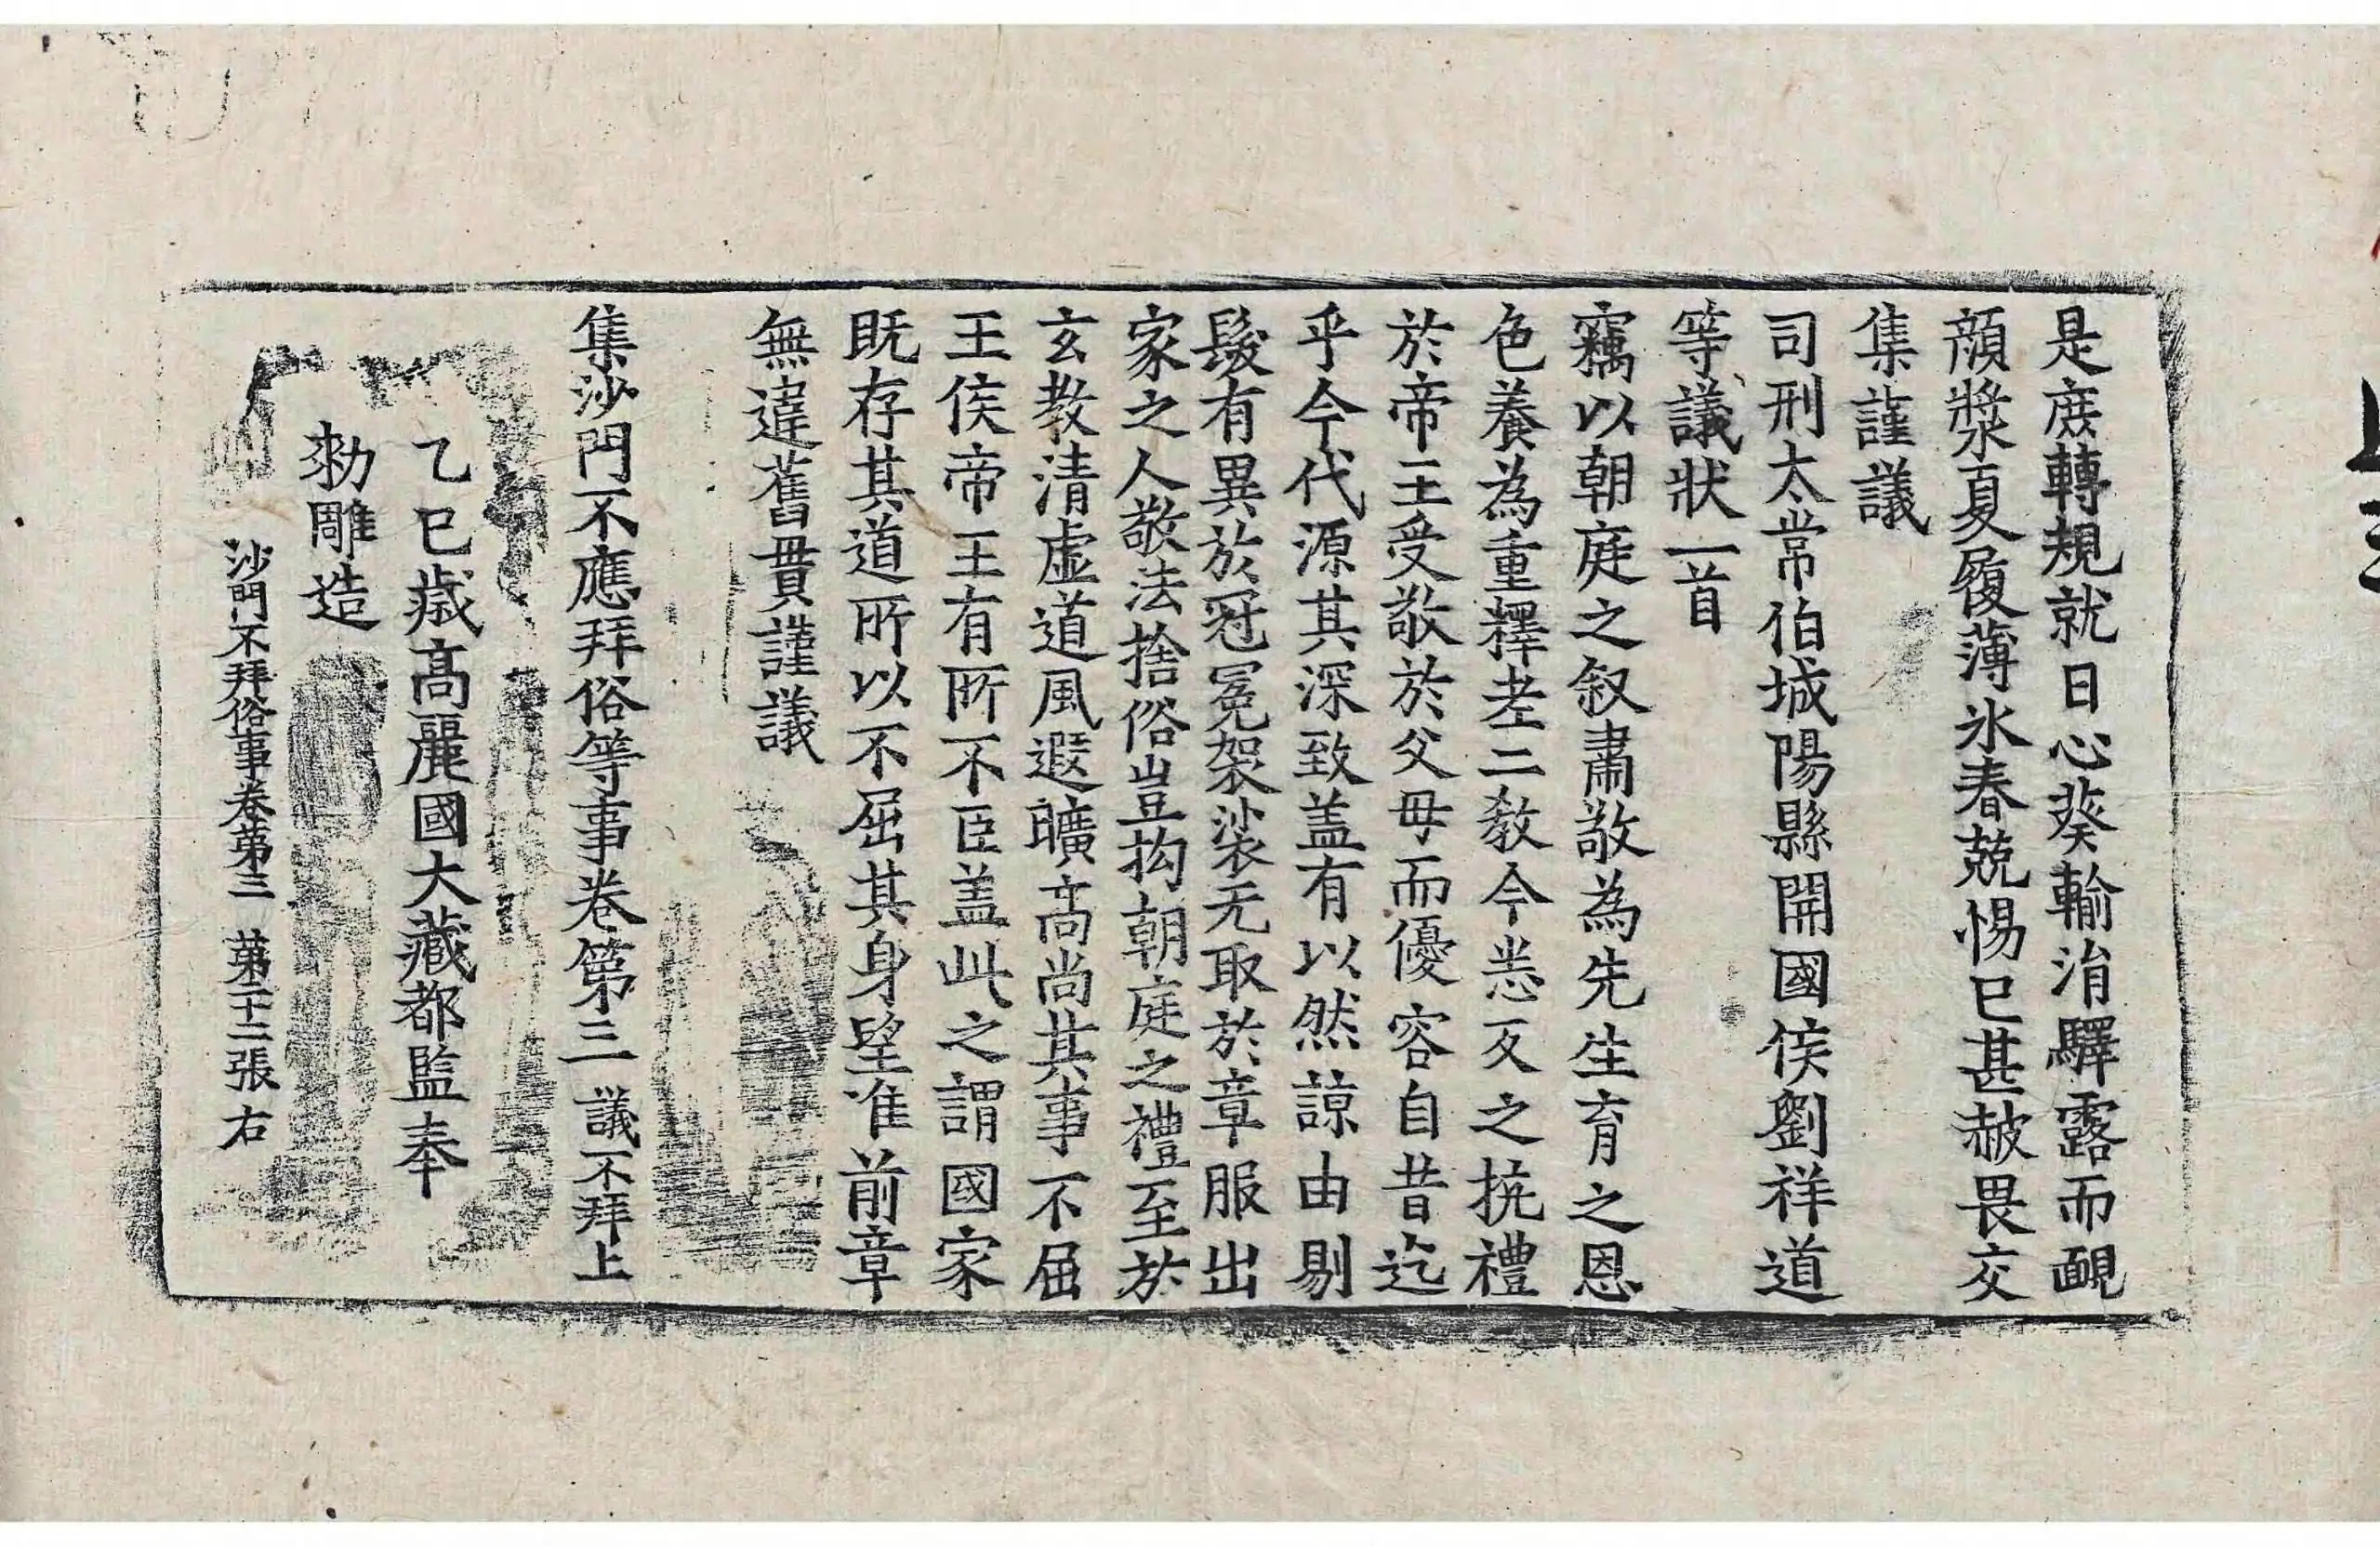 是庶轉規就日心葵輸涓驛露而靦
顔漿夏履薄氷春兢惕已甚赧畏交
集謹議
司刑太常伯城陽縣開國侯劉祥道
等議狀一首
竊以朝庭之叙肅敬為先生育之恩
色養為重釋老二教今悉反之抗禮
於帝王受敬於父母而優容自昔迄
乎今代源其深致盖有以然諒由剔
髮有異於冠冕袈裟无取於章服出
家之人敬法捨俗豈拘朝庭之禮至於
玄教清虛道風遐曠高尚其事不屈
王侯帝王有所不臣盖此之謂國家
既存其道所以不屈其身望准前章
無違舊貫謹議
集沙門不應拜俗等事卷第三 議不拜上
乙巳歲高麗國大藏都監奉
勅雕造
沙門不拜俗事卷第三 第二十二張 右